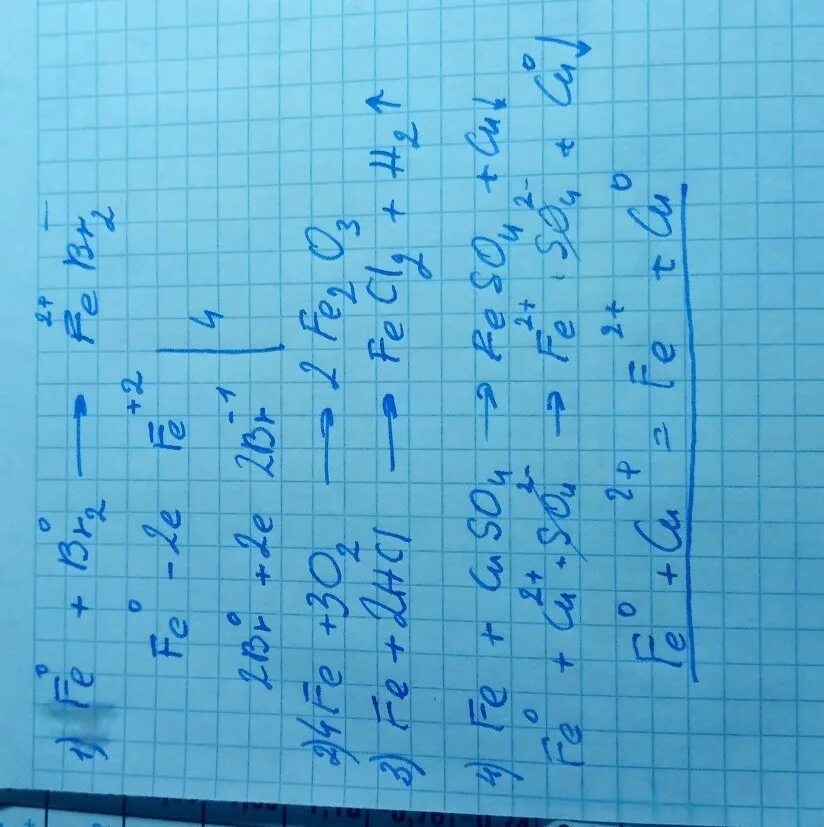 1) Fe⁰ + Br₂⁰ → Fe²⁺Br₂⁻
Fe⁰ -2e Fe⁺²
2Br⁰ +2e 2Br⁻¹ | 4
2) 4Fe + 3O₂ → 2Fe₂O₃
3) Fe + 2HCl → FeCl₂ + H₂↑
4) Fe + CuSO₄ → FeSO₄ + Cu↓
Fe⁰ + Cu²⁺ + SO₄²⁻ → Fe²⁺ · SO₄²⁻ + Cu⁰↓
Fe⁰ + Cu²⁺ = Fe²⁺ + Cu⁰